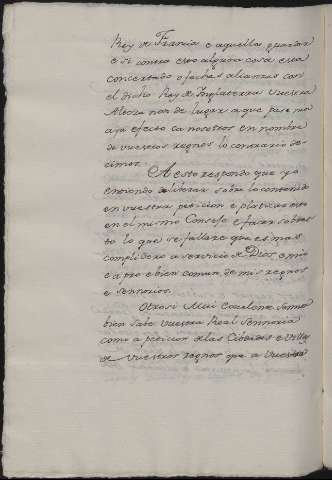 Rey de Francia e aquellas guardar
e si contra esto alguna cosa esta
concertado o fechas alianzas con
el dicho Rey de Inglaterra vuestra
Alteza non de lugar a que pase nin
aya efecto ca nosotros en nombre
de vuestros regnos lo contrario de-
cimos.
A esto respondo que yo
entiendo deliberar sobre lo contenido
en vuestra peticion e platicar esto
en el mismo Consejo e facer sobre es-
to lo que se fallare que es mas
complidero a servicio de Dios e mio
e a pro e bien comun de mis regnos
e sennorios.
Otrosi Mui Excelente Sennor
bien sabe vuestra Real Sennoria
como a peticion de las Cibdades e Villas
de vuestros regnos que a vuestra